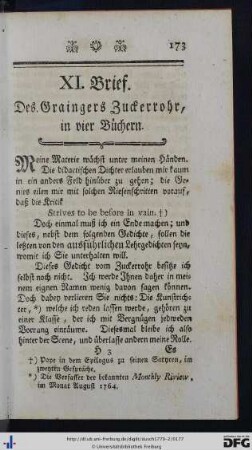 173
XI. Brief.
Des Graingers Zuckerrohr,
in vier Büchern.
Meine Materie wächst unter meinen Händen.
Die didactischen Dichter erlauben mir kaum
in ein anders Feld hinüber zu gehen; die Ge-
nies eilen mir mit solchen Riesenschritten voraus,
daß die Kritik
Strives to be before in vain. †)
Doch einmal muß ich ein Ende machen; und
dieses, nebst dem folgenden Gedichte, sollen die
letzten von den ausführlichen Lehrgedichten seyn,
womit ich Sie unterhalten will.
Dieses Gedicht vom Zuckerrohr besitze ich
selbst noch nicht. Ich werde Ihnen daher in mei-
nem eignen Namen wenig davon sagen können.
Doch dabey verlieren Sie nichts: Die Kunstrich-
ter, *) welche ich reden lassen werde, gehören zu
einer Klasse, der ich mit Vergnügen jedweden
Vorrang einräume. Diesesmal bleibe ich also
hinter der Scene, und überlasse andern meine Rolle.
H 3
Es
†) Pope in dem Epilogus zu seinen Satyren, im
zweyten Gespräche.
*) Die Verfasser der bekannten Monthly Review,
im Monat August 1764.
http://dl.ub.uni-freiburg.de/diglit/dusch1773-2/0177
© Universitätsbibliothek Freiburg